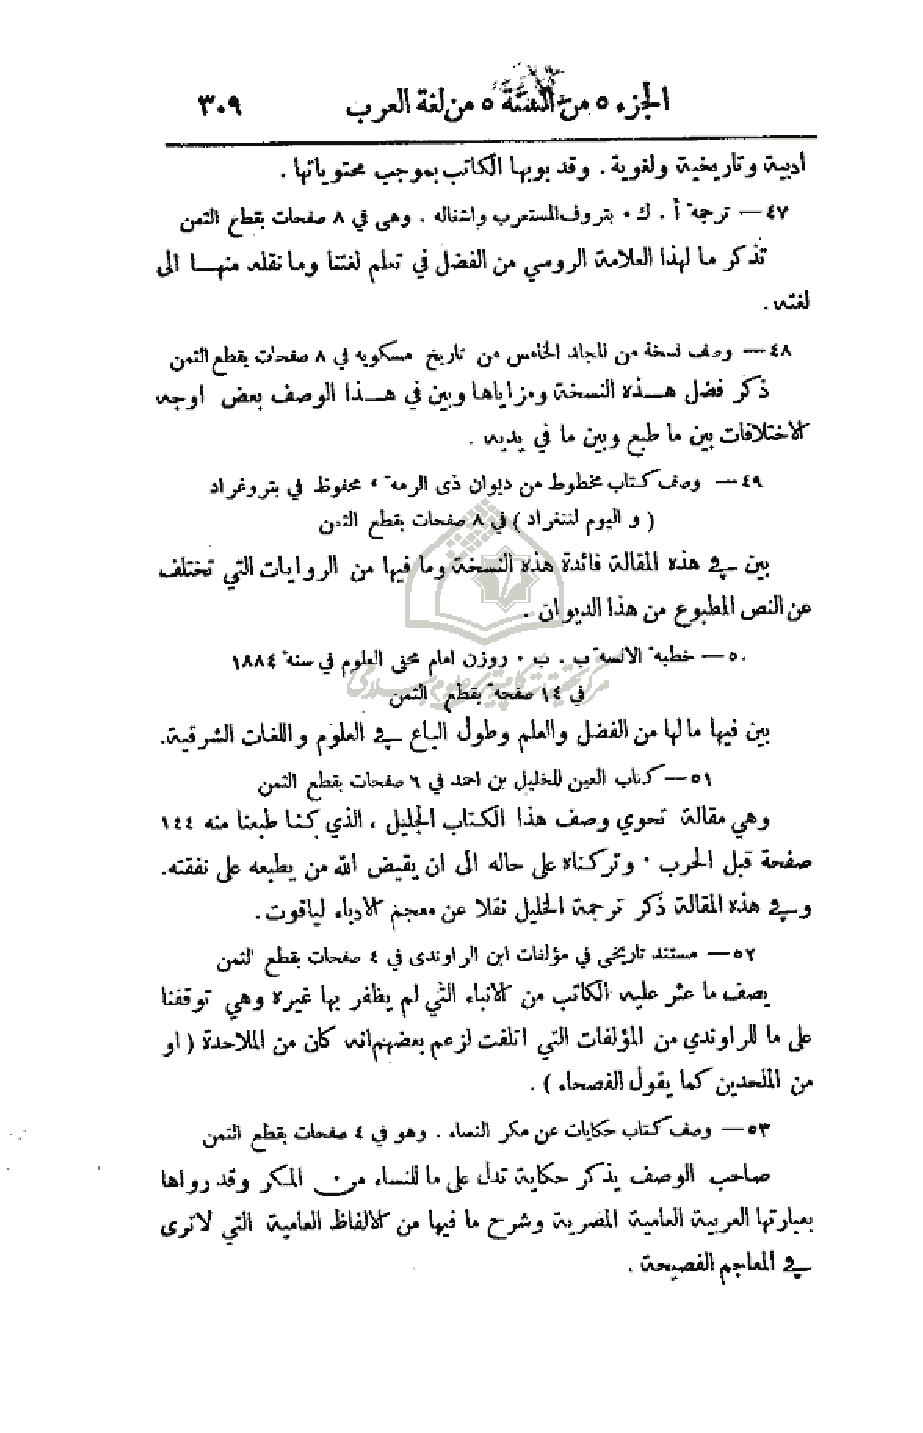 الجزء ٥ من السنة ٥ من لغة العرب ٣٠٩
ادبية وتاريخية ولغوية . وقد بوبها الكاتب بموجب محتوياتها .
٤٧ — ترجمة أ . ك . بتروف المستعرب واشغاله . وهي في ٨ صفحات بقطع الثمن
تذكر ما لهذا العلامة الروسي من الفضل في تعلم لغتنا وما نقله منهـا الى
لغته .
٤٨ — وصف نسخة من المجلد الخامس من تاريخ مسكويه في ٨ صفحات بقطع الثمن
ذكر فضل هـذه النسخة ومزاياها وبين في هـذا الوصف بعض اوجه
الاختلافات بين ما طبع وبين ما في يديه .
٤٩ — وصف كتاب مخطوط من ديوان ذى الرمة ، محفوظ في بتروغراد
( و اليوم لننغراد ) في ٨ صفحات بقطع الثمن
بين في هذه المقالة فائدة هذه النسخة وما فيها من الروايات التي تختلف
عن النص المطبوع من هذا الديوان .
٥٠ — خطبة الانسة ب . ب . روزن امام محبي العلوم في سنة ١٨٨٤
في ١٤ صفحة بقطع الثمن
بين فيها مالها من الفضل والعلم وطول الباع في العلوم واللغات الشرقية.
٥١ — كتاب العين للخليل بن احمد في ٦ صفحات بقطع الثمن
وهي مقالة تحوي وصف هذا الكتاب الجليل ، الذي كنا طبعنا منه ١٤٤
صفحة قبل الحرب . وتركناه على حاله الى ان يقيض الله من يطبعه على نفقته.
وفي هذه المقالة ذكر ترجمة الخليل نقلا عن معجم الادباء لياقوت .
٥٢ — مستند تاريخي في مؤلفات ابن الراوندى في ٤ صفحات بقطع الثمن
يصف ما عثر عليه الكاتب من الانباء التي لم يظفر بها غيره وهي توقفنا
على ما للراوندي من المؤلفات التي اتلفت لزعم بعضهم انه كان من الملاحدة ( او
من الملحدين كما يقول الفصحاء ) .
٥٣ — وصف كتاب حكايات عن مكر النساء . وهو في ٤ صفحات بقطع الثمن
صاحب الوصف يذكر حكاية تدل على ما للنساء من المكر وقد رواها
بعبارتها العربية العامية المصرية وشرح ما فيها من الالفاظ العامية التي لا ترى
في المعاجم الفصيحة .